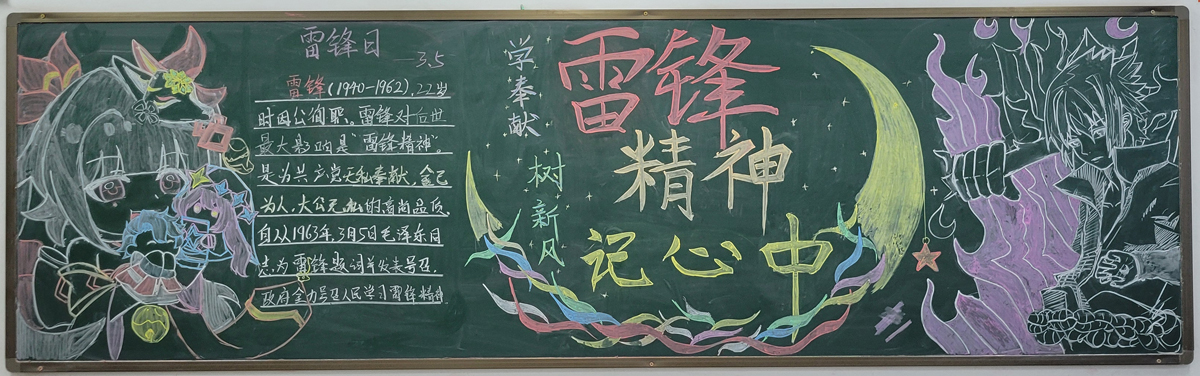 雷锋日
—3.5
雷锋(1940-1962),22岁
时因公殉职,雷锋对后世
最大影响是“雷锋精神”。
是为共产党无私奉献,舍己
为人,大公无私的高尚品质,
自从1963年,3月5日毛泽东同
志为雷锋题词并发表号召,
政府全力号召人民学习雷锋精神
学奉献
树新风
雷锋
精神
记心中